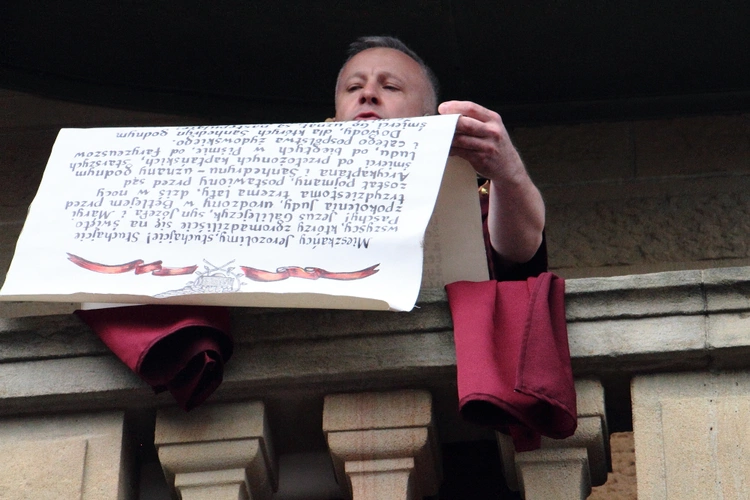 Mieszkańcy Jerozolimy, słuchajcie! Słuchajcie
wszyscy, którzy zgromadziliście się na święto
Paschy! Jezus Galilejczyk, syn Józefa i Maryi
z pokolenia Judy, urodzony w Betlejem przed
trzydziestoma trzema laty, dziś w nocy
został pojmany, postawiony przed sąd
Arcykapłana i Sanhedrynu – uznany godnym
śmierci od przełożonych kapłańskich, Starszych
ludu, od biegłych w Piśmie, od faryzeuszów
i całego pospólstwa żydowskiego.
Dowody, dla których Sanhedryn godnym
śmierci Go uznał, są następujące: